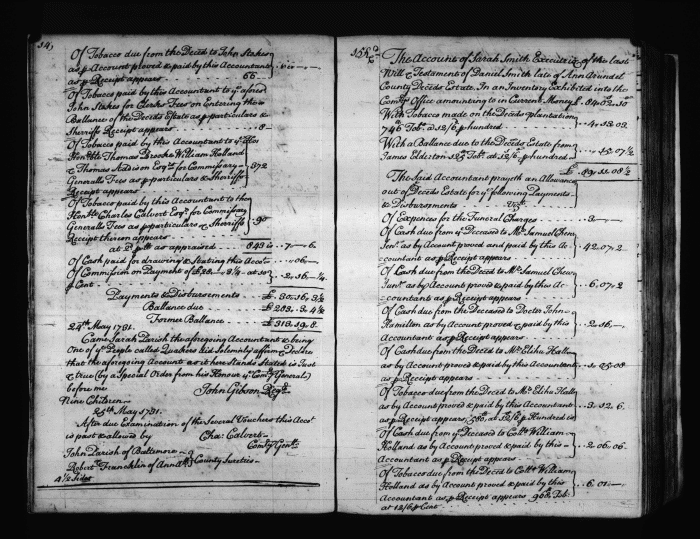 54,
Of Tobacco due from the Deced to John Stokes
as p Account proved & paid by this Accountant
as p Receipt appears 66
Of Tobacco paid by this Accountant to yᵉ afores
John Stokes for Clerks Fees on Entering the
Ballance of the Deceds Estate as p particulars &
Sheriffs Receipt appears 8
Of Tobacco paid by this Accountant to yᵉ
Honᵇˡᵉ Thomas Brooke William Holland
& Thomas Addison Esqʳˢ for Commissary
Generalls Fees as p particulars & Sheriffs 372
Receipt appears
Of Tobacco paid by this Accountant to the
Honᵇˡᵉ Charles Calvert Esqʳ for Commissary
Generalls Fees as p particulars & Sherriffs 90
Receipt thereon appears
at 2 p as appraised 843 is 7 6
Of Cash paid for drawing & Stating this Accoᵗ 06
Of Commission on Payment of at 10 2, 16, ¼
p Cent
Payments & Disbursements £ 30, 16, 3½
Ballance due £ 283, 3, 4½
Former Ballance £ 313, 19, 8
24ᵗʰ May 1731.
Came Sarah Parish the aforegoing Accountant & being
One of yᵉ People called Quakers did Solemnly affirm & Declare
that the aforegoing Account as it here Stands Stated is Just
& true (by a Special Order from his Honour yᵉ Comʳʸ General)
before me John Gibson
Nine Children
25ᵗʰ May 1731.
After due Examination of the Several Vouchers this Accoᵗ
is past & allowed by Chaˢ Calvert
Comʳʸ Genˡˡ
John Parish of Baltimore
Robert Francklin of Ann County Sureties
4½ Sides
The Account of Sarah Smith Executrix of the last
Will & Testament of Daniel Smith late of Ann Arundel
County Deceds Estate. In an Inventory Exhibited into the
Comʳʸˢ Office amounting to in Current Money £ 84, 02, 10
With Tobacco made on the Deceds plantation
746 Tobᵒ @ 12/6 p hundred 4, 13, 03
With a Ballance due to the Deceds Estate from
James Elderton 125 Tobᵒ at 12/6 p hundred 15, 07½
£ 89, 11, 08½
The Said Accountant prayeth an Allowance
out of Deceds Estate for yᵉ following Payments
& Disbursements
Of Expences for the Funeral Charges 3
Of Cash due from yᵉ Deceased to Mʳ Samuel Chew
Senʳ as by Account proved and paid by this Ac- 42, 07, 2
countant as p Receipt appears
Of Cash due from the Deced to Mʳ Samuel Chew
Junʳ as by Account proved & paid by this Ac- 6, 07, 2
countant as p Receipt appears
Of Cash due from the Deceased to Doctor John
Hamilton as by Account proved & paid by this 2, 16
Accountant as p Receipt appears
Of Cash due from the Deced to Mʳ Elihu Hall
as by Account proved & paid by this Accountant 1, 05, 08
as p Receipt appears
Of Tobacco due from the Deced to Mʳ Elihu Hall
as by Account proved & paid by this Accountant 3, 12, 6
as p Receipt appears, 580, at 12/6 p Hundred is
Of Cash due from yᵉ Deceased to Collᵒ William
Holland as by Account proved & paid by this 2, 06, 06
Accountant as p Receipt appears
Of Tobacco due from the Deced to Collᵒ William
Holland as by Account proved & paid by this 6, 01
Accountant as p Receipt appears 968, Tob
at 12/6 p Cent